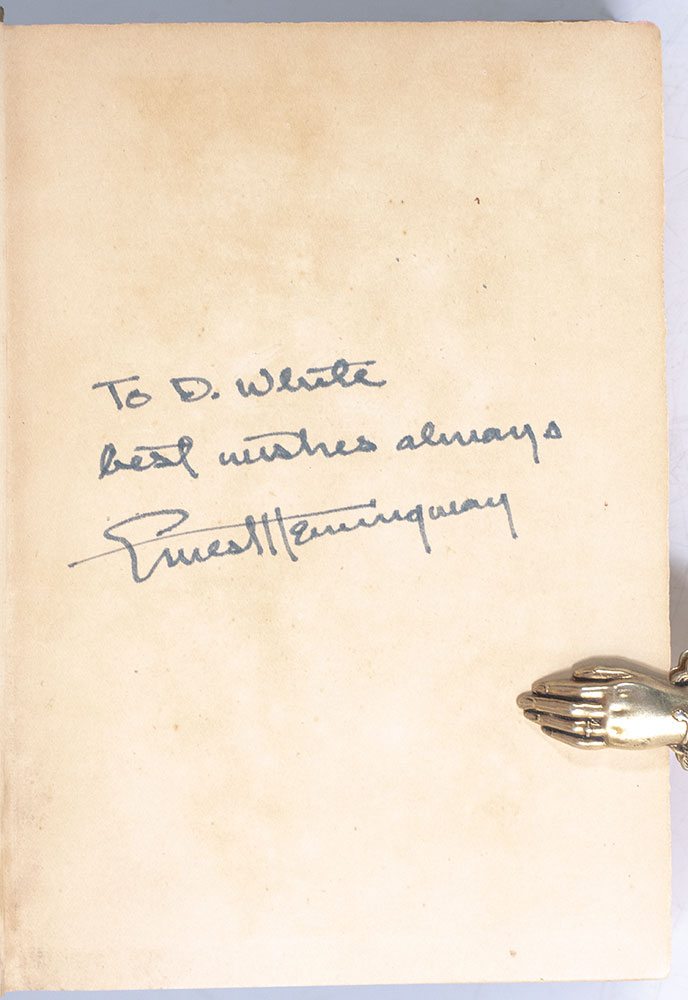 To D. White
best wishes always
Ernest Hemingway